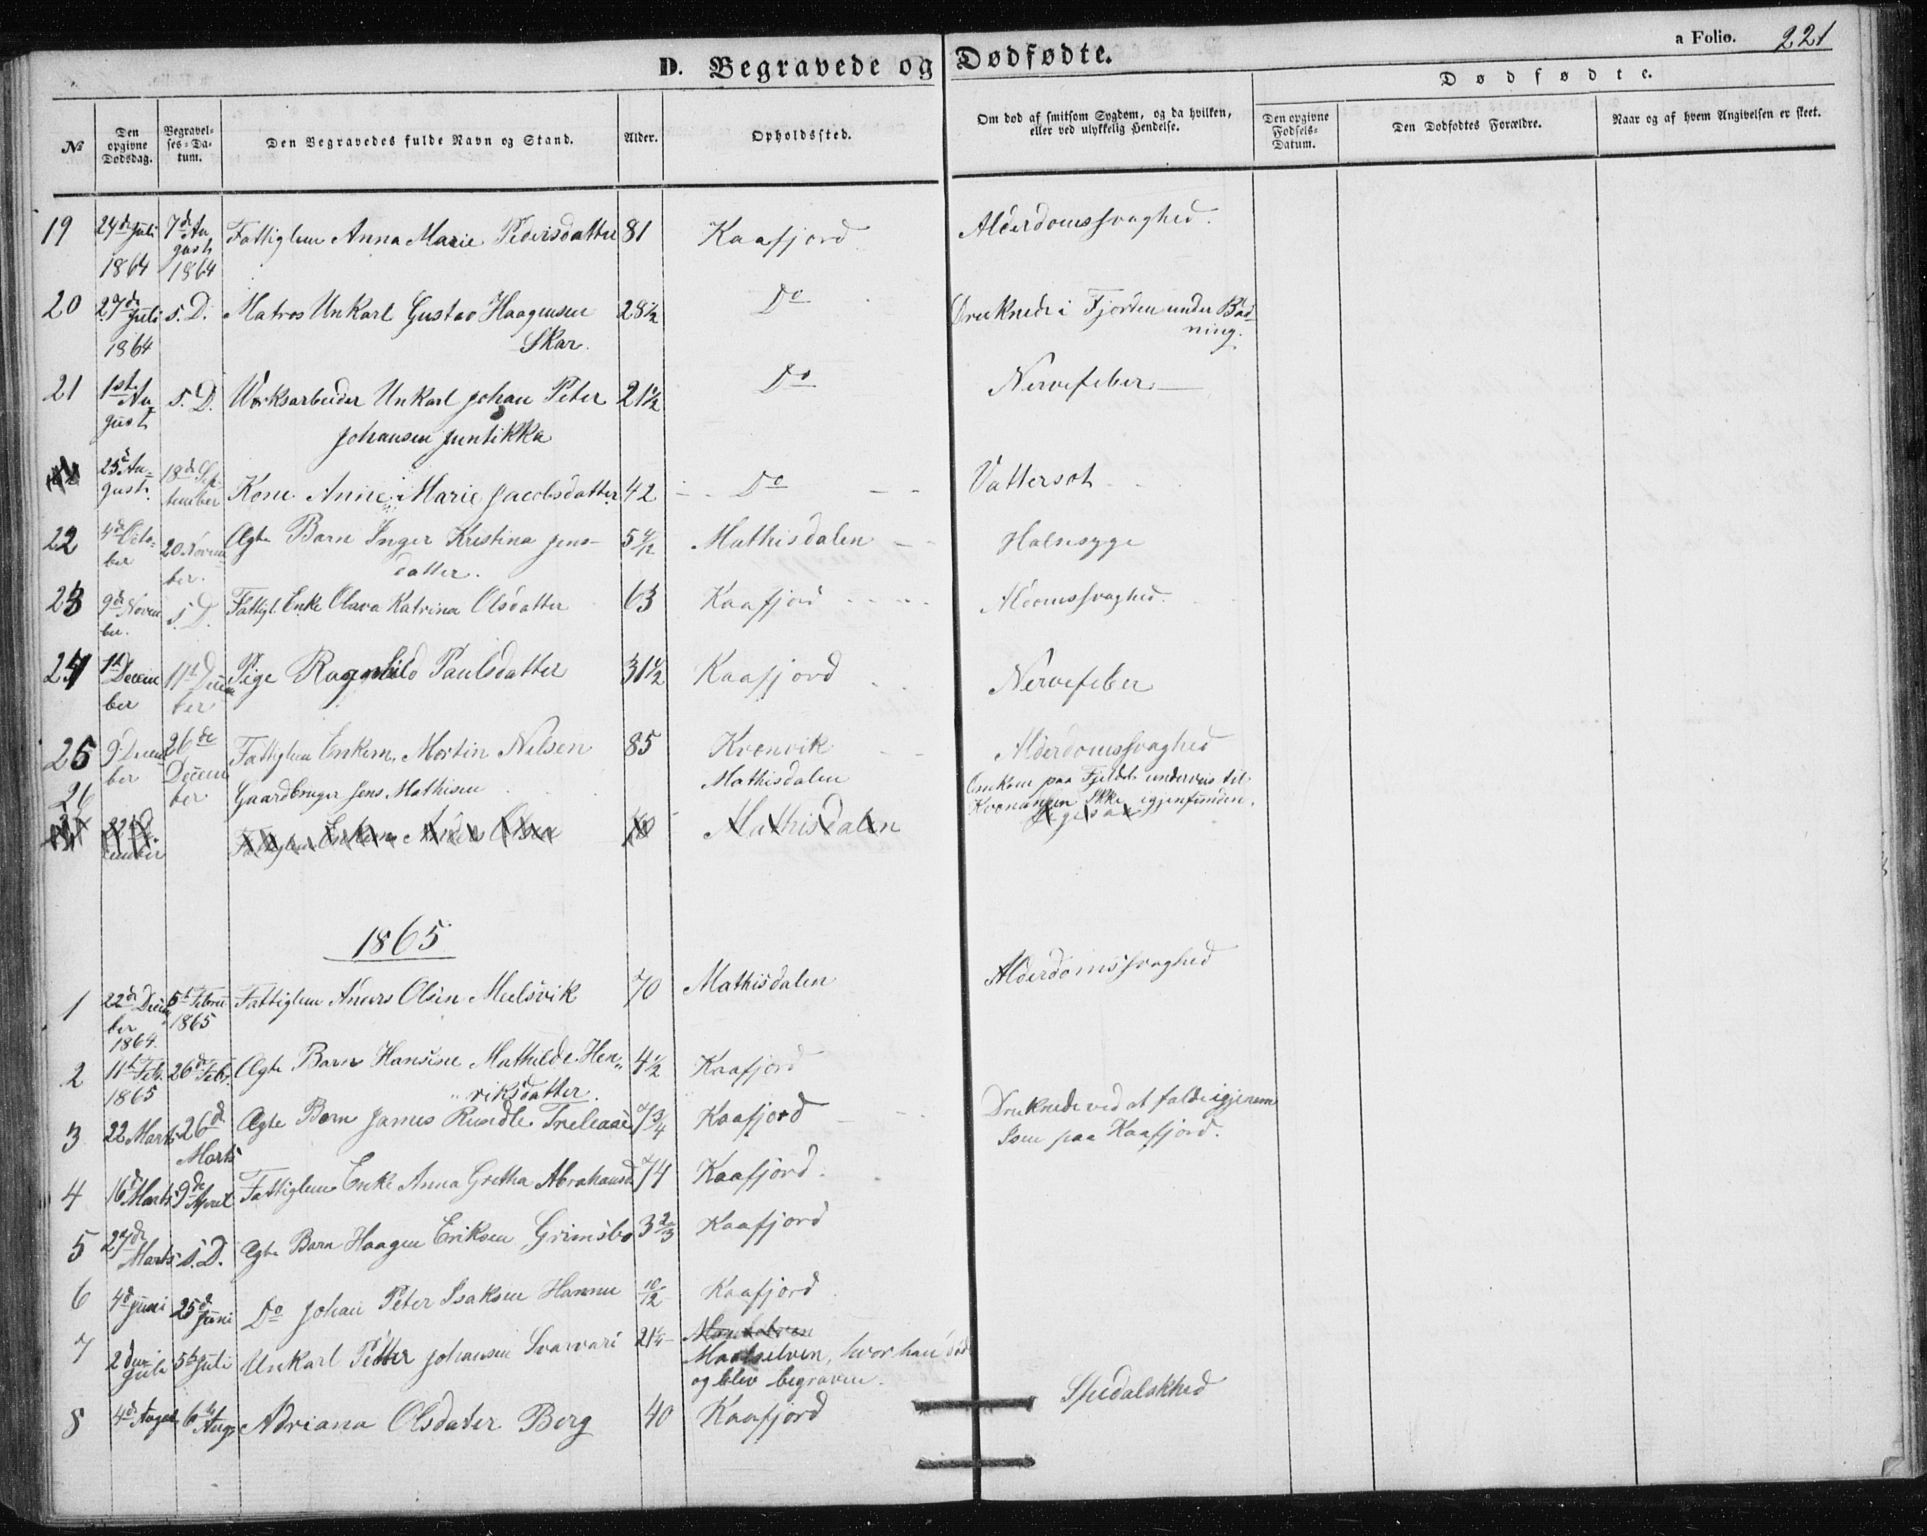 D. Begravede og Dødfødte.
a Folio. 221
Dødfødte.
№
Den opgivne Dødsdag.
Begravelses-Datum.
Den Begravedes fulde Navn og Stand.
Alder.
Opholdssted.
Om død af smitsom Sygdom, og da hvilken, eller ved ulykkelig Hendelse.
Den opgivne Fødsels-Datum.
Den Dødfødtes Forældre.
Naar og af hvem Angivelsen er skeet.
19 24de Juli 1864 7de August 1864 Fattiglem Anna Marie Pedersdatter 81 Kaafjord Alderdomssvaghed.
20 27de Juli 1864 s. D. Matros Unkarl Gustav Haagensen Skar. 28½ Do Druknede i Fjorden under Badning.
21 1st August s. D. Værksarbeider Unkarl Johan Peter Johansen Juntikka 21½ Do Nervefeber
25de August. 18de September Kone Anne Marie Jacobsdatter 42 Do Vattersot
22 4de October 20 November. Ægte Barn Inger Kristina Jensdatter. 5 Mathisdalen Halssyge
23 9de November. s. D. Fattigl. Enke Olava Katrina Olsdatter 63 Kaafjord Aldomssvaghed.
24 1st December 11te December Pige Ragnhild Paulsdatter 31½ Kaafjord Nervefeber
25 9 December 26de December Fattiglem Enkem. Mortin Nilsen 85 Kvenvik Alderdomssvaghed
26 Gaardbruger Jens Mathisen Mathisdalen Omkom paa Fjeldet underveis til Ikke igjenfunden.
Fattiglem Enkem Anders Olsen 70 Mathisdalen Ligesaa
1865
1 22de December 1864. 5te Febru 1865 Fattiglem Anders Olsen Melsvik 70 Mathisdalen Alderdomssvaghed
2 11te Feb. 1865 26de Febr. Ægte Barn Hansine Mathilde Hen„ „riksdatter. 4½ Kaafjord
3 22 Marts 26de Marts Ægte Barn James 7¾ Kaafjord Druknede ved at falde igjennem Isen paa Kaafjord.
4 16de Marts 9de April Fattiglem Enke Anna Gretha Abrahamsd 74 Kaafjord.
5 27de Marts s. D. Ægte Barn Haagen Eriksen Grimsbo 3⅔ Kaafjord
6 4de Juni 25de Juni Do Johan Peter Isaksen Hannu 10/12 Kaafjord
7 2den Juli 5te Juli Unkarl Petter Johansen 21¼ Maalselven, hvor han død og blev begraven.
8 4de August 6te Aug. Adriana Olsdater Berg 40 Kaafjord Spedalskhed